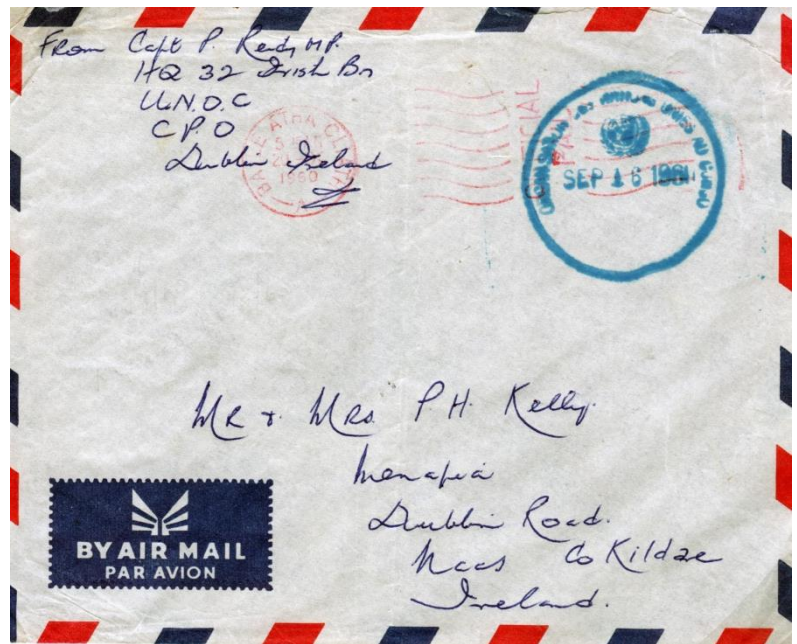 From Capt P. Ready MP.
HQ 32 Irish Bn
U.N.O.C
C.P.O
Dublin Ireland
BAILE ATHA CLIATH
1960
SEP 16 1961
Mr & Mrs P H. Kelly.
Menapia
Dublin Road.
Naas Co Kildare
Ireland.
BY AIR MAIL
PAR AVION